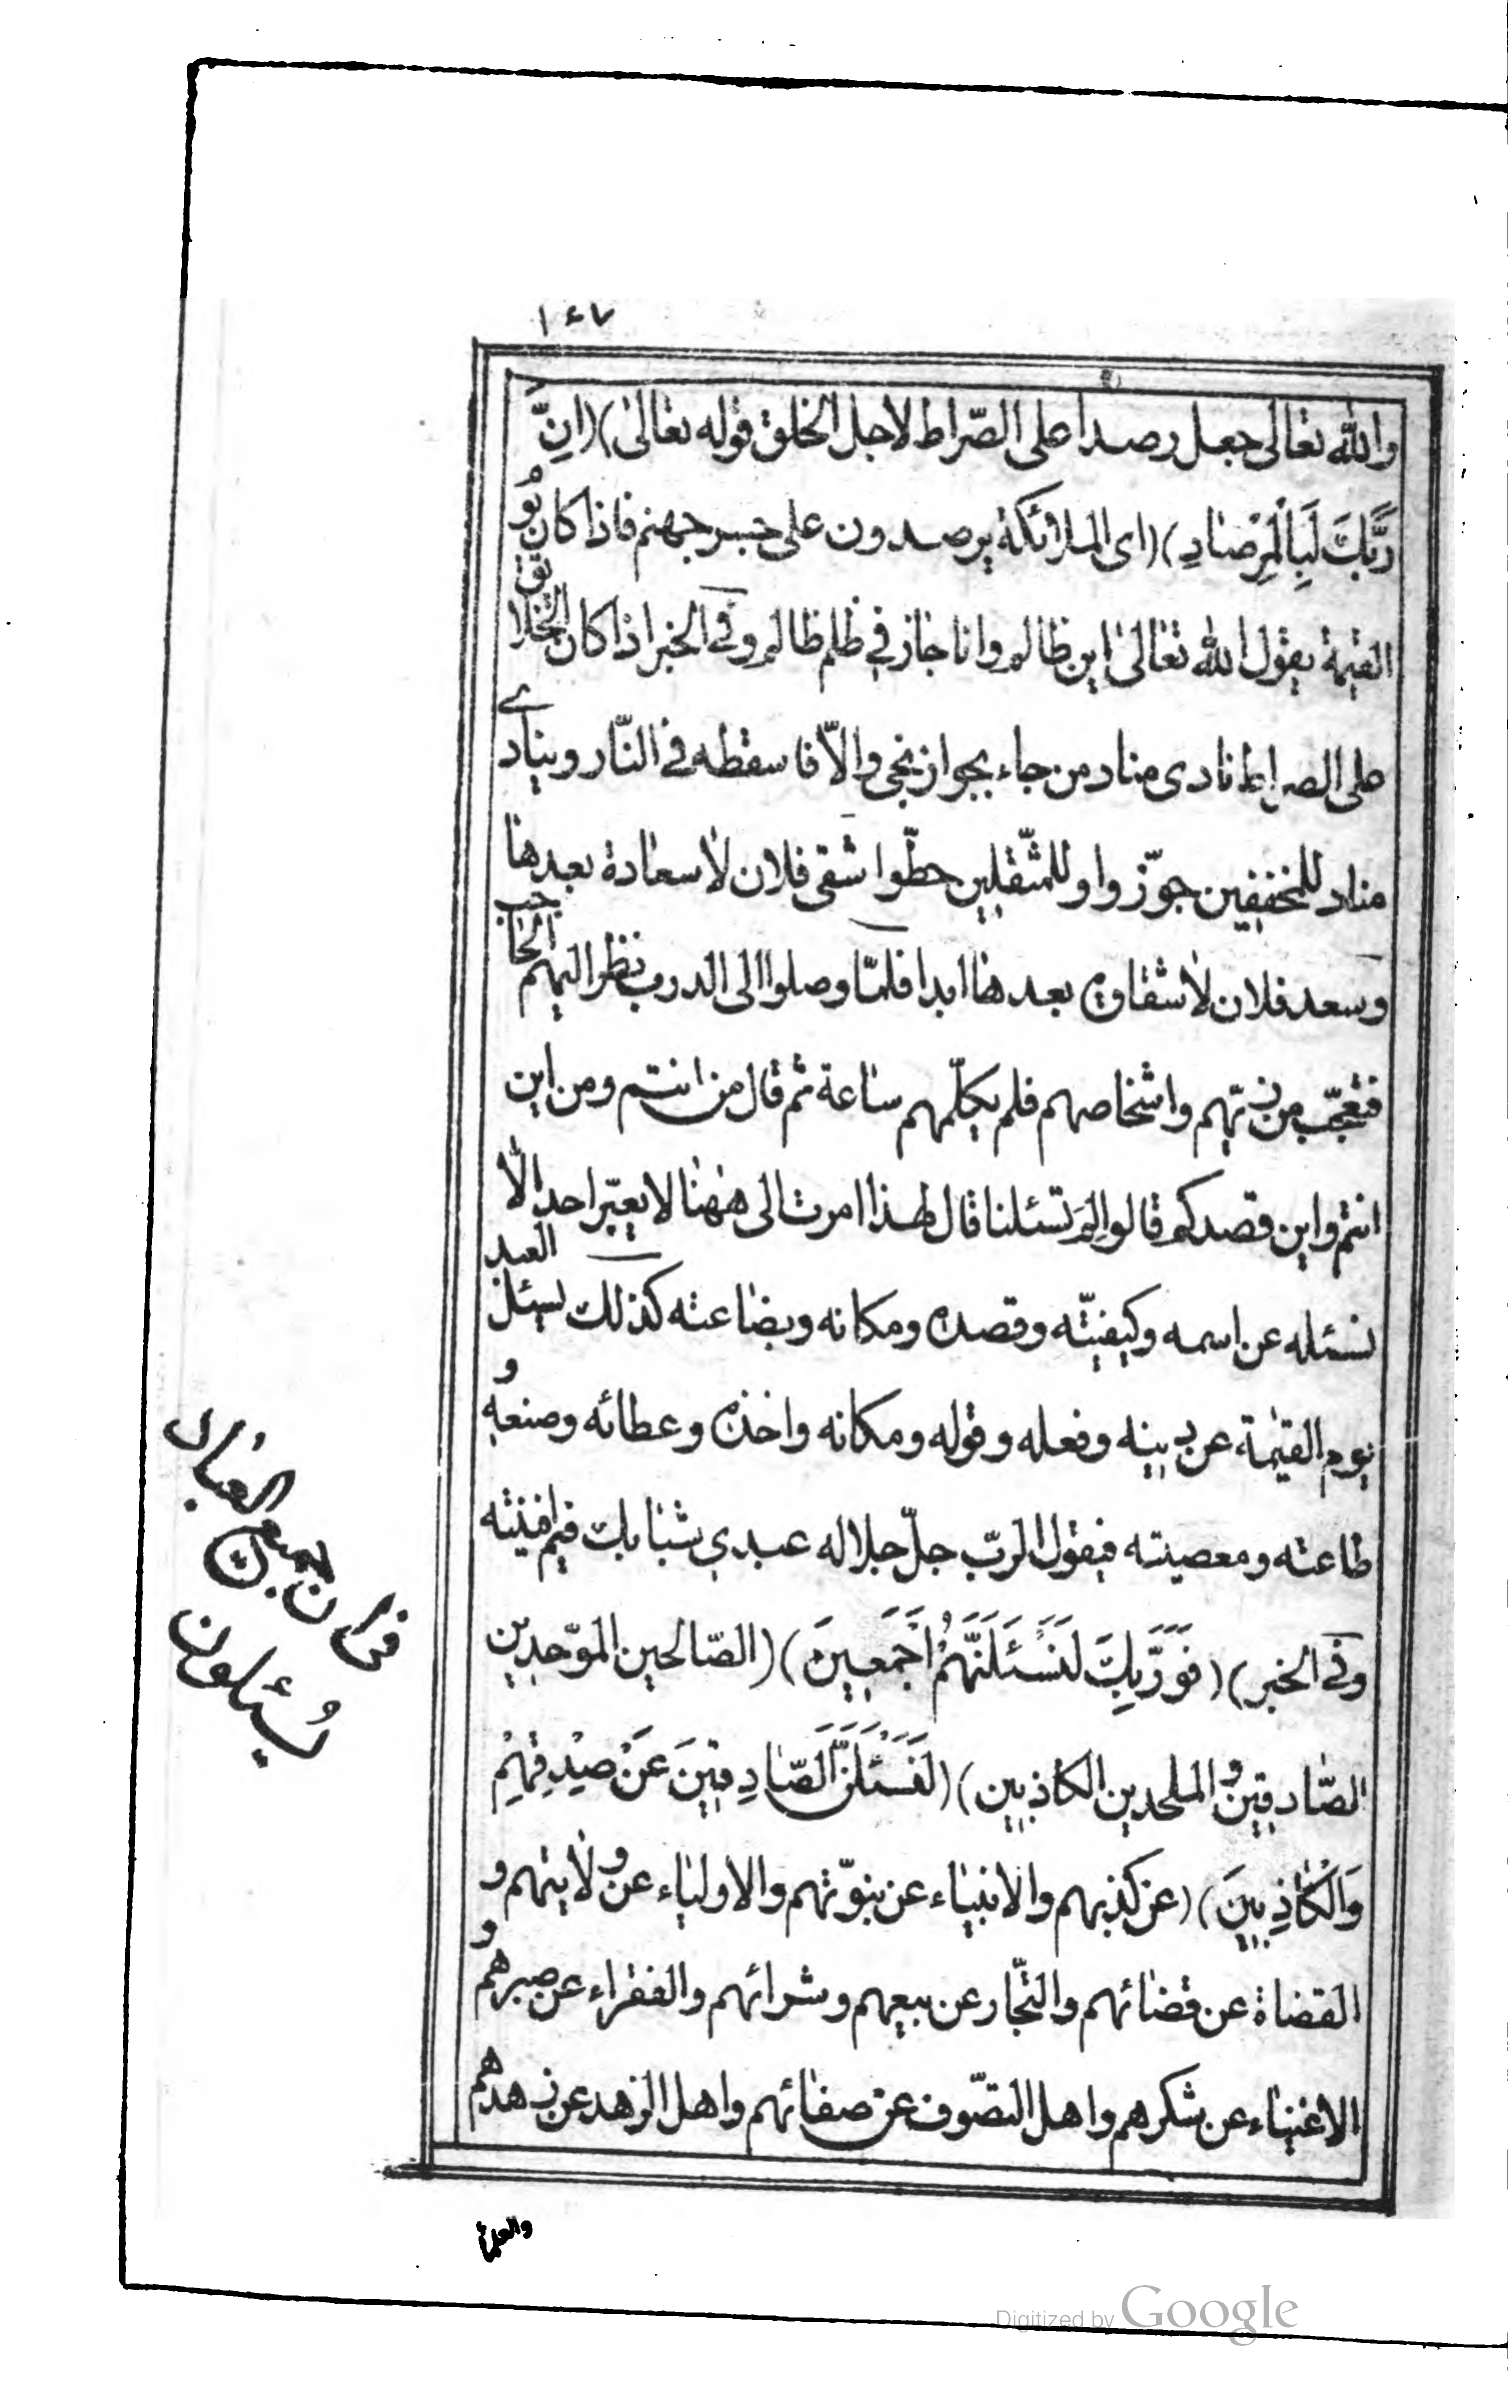 ١٤٧
والله تعالى جعل رصدا على الصّراط لاجل الخلق قوله تعالى)(اِنَّ
رَبَّكَ لَبِالْمِرْصَادِ)(اى الملائكة يرصدون على جسر جهنم فاذا كان يوم
القيمة يقول الله تعالى اين ظالم وانا جاز في ظلم ظالم وفى الخبر اذا كان الخلائق
على الصراط نادى مناد من جاء بجواز نجى والّا فاسقطه فى النّار وينادى
مناد للمخففين جوّزوا وللمثّقلين حطّوا شقى فلان لاسعادة بعدها
وسعد فلان لاشقاوة بعدها ابدا فلمّا وصلوا الى الدرب نظر اليهم الحاجب
فتعجّب من زيّهم واشخاصهم فلم يكلّمهم ساعة ثم قال من انتم ومن اين
انتم واين قصدكم قالوا لِمَ تسئلنا قال لهذا امرت الى ههنا لا يعبّر احد الّا
نسئله عن اسمه وكيفيّته وقصده ومكانه وبضاعته كذلك يسئل العبد
يوم القيمة عن دينه وفعله وقوله ومكانه واخذه وعطائه وصنعه و
طاعته ومعصيته فيقول الربّ جلّ جلاله عبدي شبابك فيم افنيته
وفى الخبر)(فَوَرَبِّكَ لَنَسْئَلَنَّهُمْ اَجْمَعِينَ)(الصّالحين الموّحدين
الصّادقين والملحدين الكاذبين)(لَنَسْئَلَنَّ الصَّادِقِينَ عَنْ صِدْقِهِمْ
وَالْكَاذِبِينَ)(عن كذبهم والانبياء عن نبوّتهم والاولياء عن ولايتهم و
القضاة عن قضائهم والتجّار عن بيعهم وشرائهم والفقراء عن صبرهم و
الاغنياء عن شكرهم واهل التصّوف عن صفائهم واهل الزهد عن زهدهم
والعلماء
جميع العباد
يُسئلون
Digitized by Google